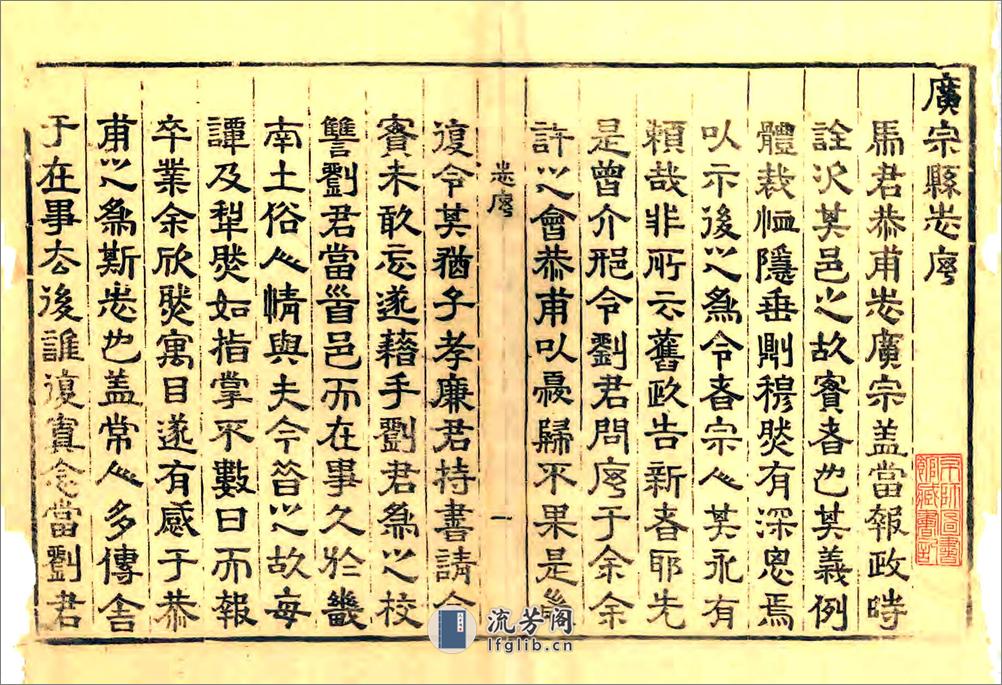 廣宗縣志序
馬君恭甫志廣宗盖當報政時
詮次其邑之故實者也其義例
體裁恤隱垂則穆然有深思焉
以示後之為令者宗人其永有
賴哉非所云舊政告新者耶先
是曾介邢令劉君問序于余余
許之會恭甫以憂歸不果是後
志序
一
復令其猶子孝廉君持書請余
實未敢忘遂藉手劉君為之校
讐劉君當首邑而在事久於畿
南土俗人情與夫今昔之故每
譚及犁然如指掌不數日而報
卒業余欣然寓目遂有感于恭
甫之為斯志也盖常人多傳舍
于在事去後誰復寘念當劉君
京師圖書
館藏書記
流芳阁
lfglib.cn